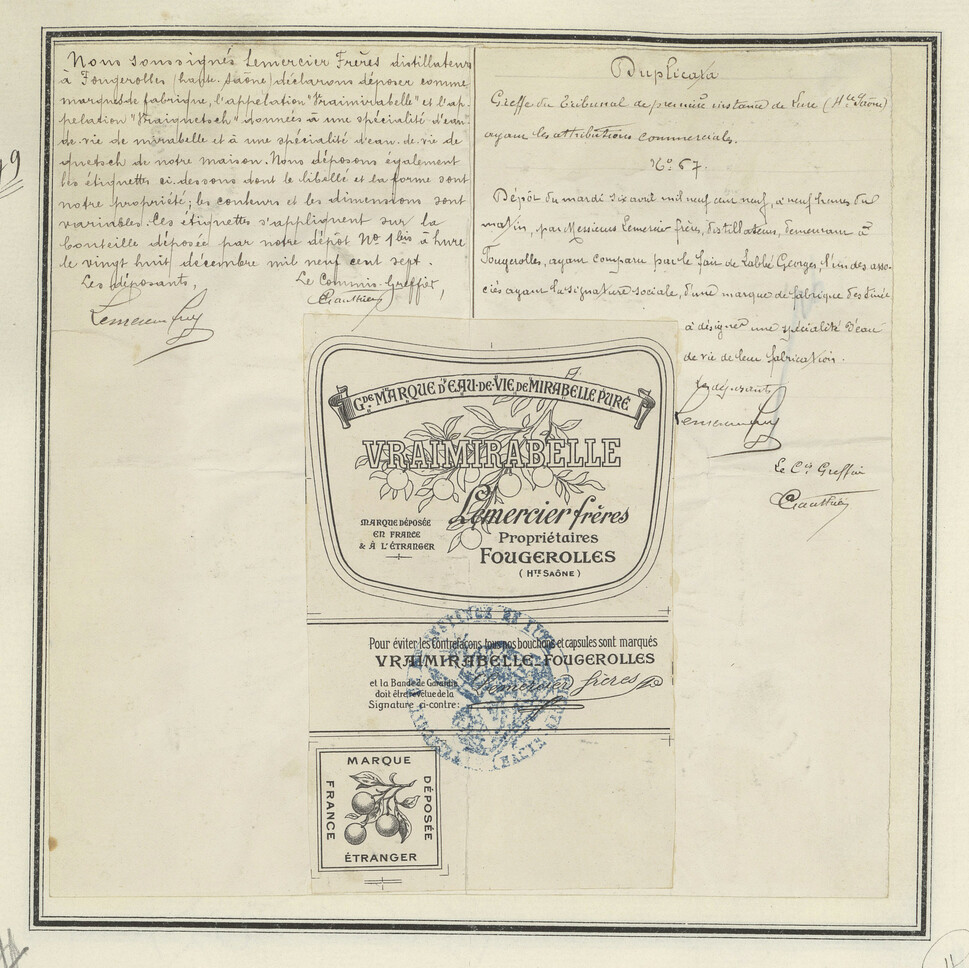 Nous soussignés Lemercier Frères distillateurs
à Fougerolles (haute-Saône) déclarons déposer comme
marques de fabrique, l'appelation "Vraimirabelle" et l'ap-
pelation "Vraiquetsch" données à une spécialité d'eau-
de-vie de mirabelle et à une spécialité d'eau-de-vie de
quetsch de notre maison. Nous déposons également
les étiquettes ci-dessous dont le libellé et la forme sont
notre propriété; les couleurs et les dimensions sont
variables. Ces étiquettes s'appliquent sur la
bouteille déposée par notre dépôt No 1 bis à Lure
le vingt huit décembre mil neuf cent sept.
Les déposants,
Le Commis-Greffier,
Lemercier
Gauthier
Duplicata
Greffe du Tribunal de première instance de Lure (Hte Saône)
ayant les attributions commerciales.
No 67.
Dépôt du mardi six avril mil neuf cent neuf, à neuf heures du
matin, par Messieurs Lemercier frères, distillateurs, demeurant à
Fougerolles, ayant comparu par le sieur de Lablé Georges, l'un des asso-
ciés ayant la signature sociale, d'une marque de fabrique destinée
à désigner une spécialité d'eau
de vie de leur fabrication.
Les déposants
Lemercier
Le Cis Greffier
Gauthier
Gde MARQUE D'EAU-DE-VIE DE MIRABELLE PURE
VRAIMIRABELLE
Lemercier frères
MARQUE DÉPOSÉE
EN FRANCE
& À L'ÉTRANGER
Propriétaires
FOUGEROLLES
(HTE SAÔNE)
Pour éviter les Contrefaçons tous nos bouchons et capsules sont marqués
VRAIMIRABELLE-FOUGEROLLES
et la Bande de Garantie
doit être revêtue de la
Signature ci-contre:
Lemercier frères
MARQUE
DÉPOSÉE
FRANCE
ÉTRANGER